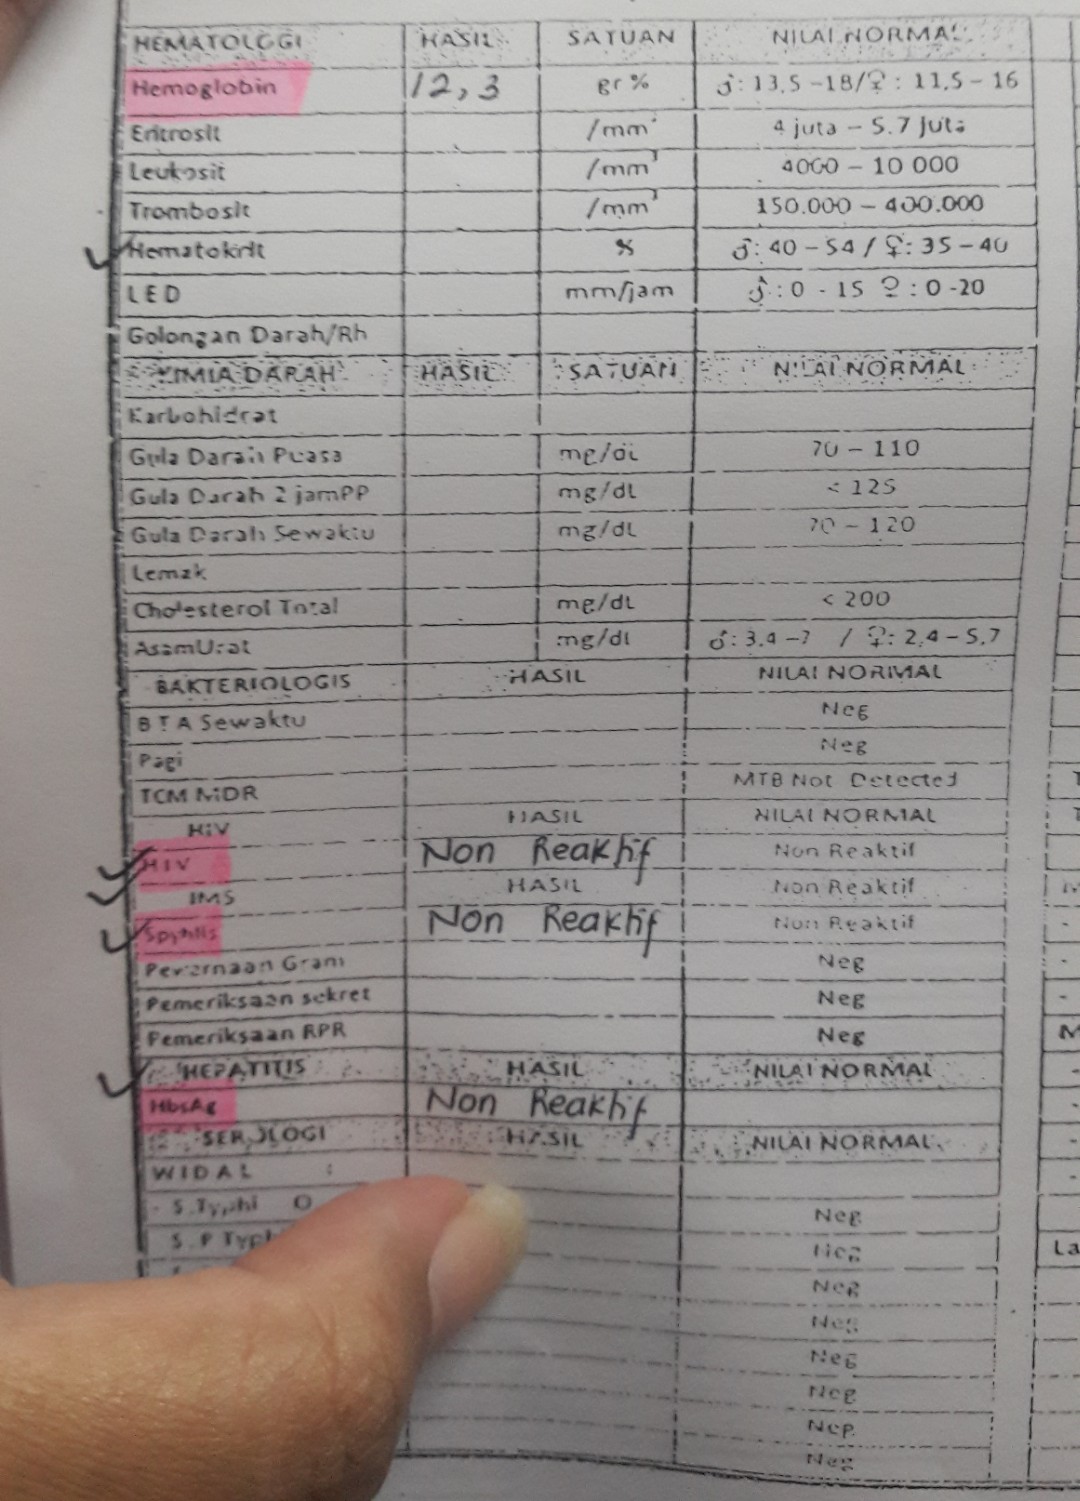 HEMATOLOGI HASIL SATUAN NILAI NORMAL
Hemoglobin 12,3 gr% ♂: 13,5 -18/♀: 11,5 - 16
Eritrosit /mm³ 4 juta - 5.7 juta
Leukosit /mm³ 4000 - 10 000
Trombosit /mm³ 150.000 - 400.000
Hematokrit % ♂: 40 - 54 / ♀: 35 - 40
LED mm/jam ♂: 0 - 15 ♀: 0 -20
Golongan Darah/Rh
KIMIA DARAH HASIL SATUAN NILAI NORMAL
Karbohidrat
Gula Darah Puasa mg/dl 70 - 110
Gula Darah 2 jamPP mg/dL < 125
Gula Darah Sewaktu mg/dL 70 - 120
Lemak
Cholesterol Total mg/dL < 200
AsamUrat mg/dl ♂: 3,4 -7 / ♀: 2,4 - 5,7
BAKTERIOLOGIS HASIL NILAI NORMAL
BTA Sewaktu Neg
Pagi Neg
TCM MDR MTB Not Detected
HIV HASIL NILAI NORMAL
HIV Non Reaktif Non Reaktif
IMS HASIL Non Reaktif
Syphilis Non Reaktif Non Reaktif
Pewarnaan Gram Neg
Pemeriksaan sekret Neg
Pemeriksaan RPR Neg
HEPATITIS HASIL NILAI NORMAL
HbsAg Non Reaktif
SEROLOGI HASIL NILAI NORMAL
WIDAL :
- S.Typhi O Neg
S.P Typh Neg
Neg
Neg
Neg
Neg
Neg
Neg
La